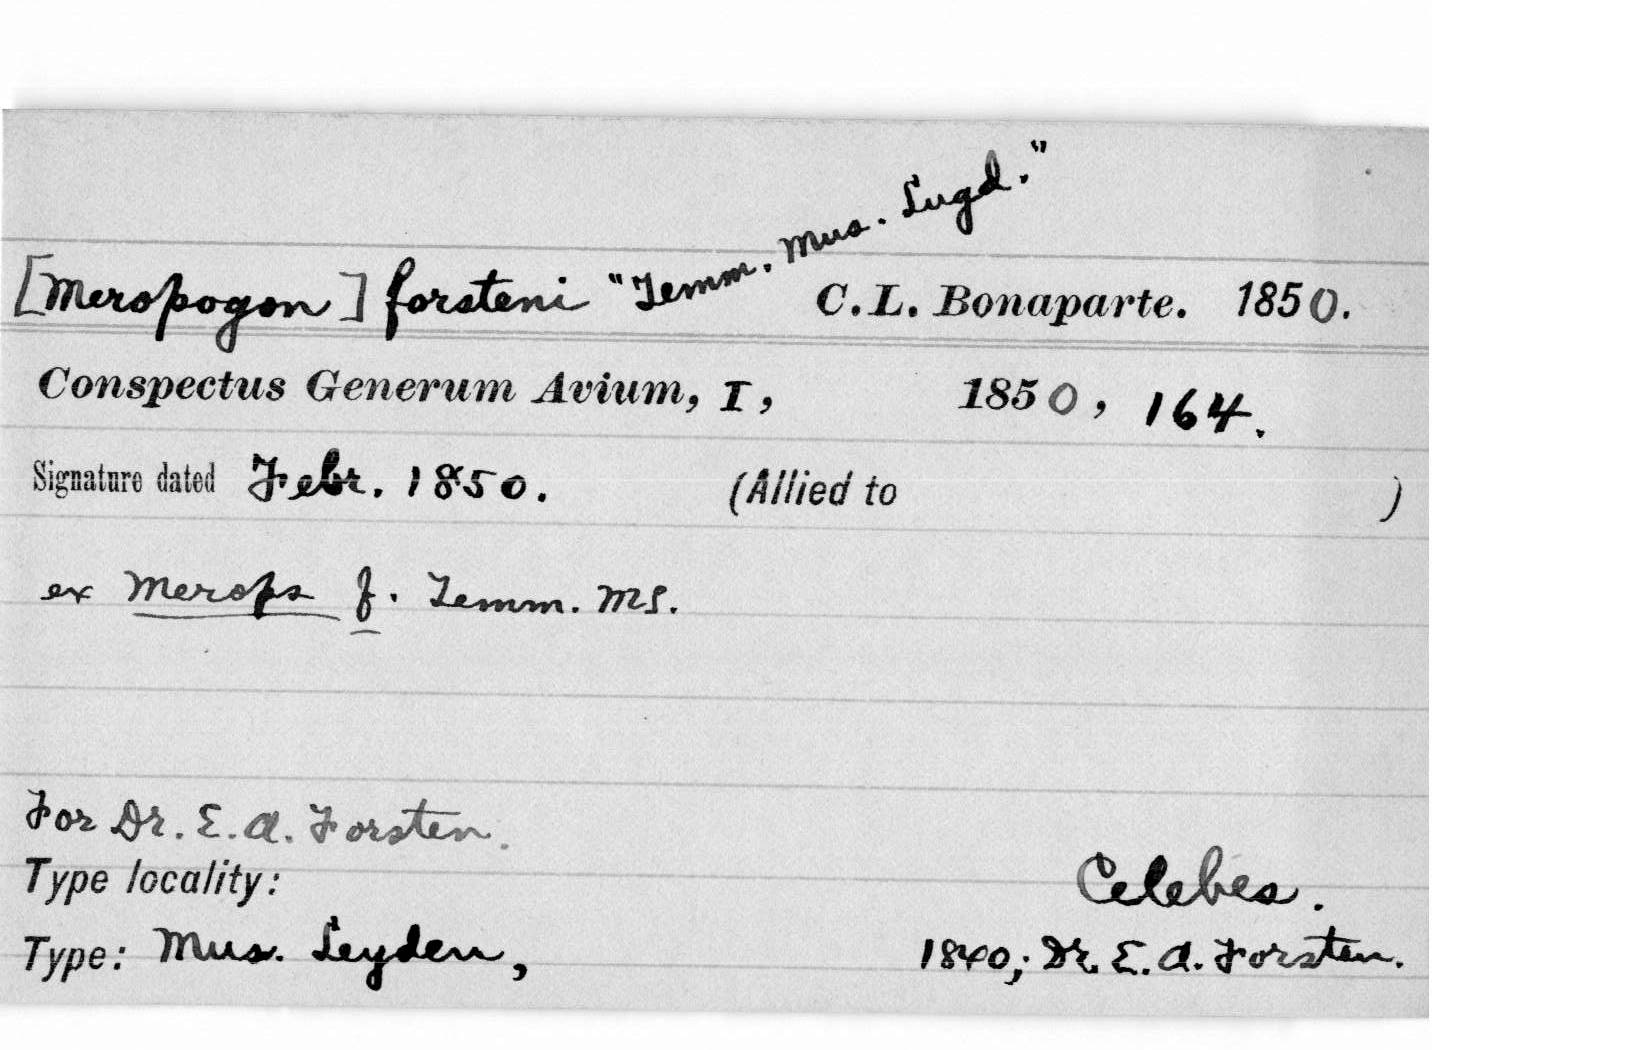 [Meropogon] forsteni "Temm. Mus. Lugd." C.L. Bonaparte. 1850.
Conspectus Generum Avium, I, 1850, 164.
Signature dated Febr. 1850. (Allied to )
ex Merops f. Temm. MS.
For Dr. E. A. Forsten.
Type locality: Celebes.
Type: Mus. Leyden, 1840; Dr. E. A. Forsten.